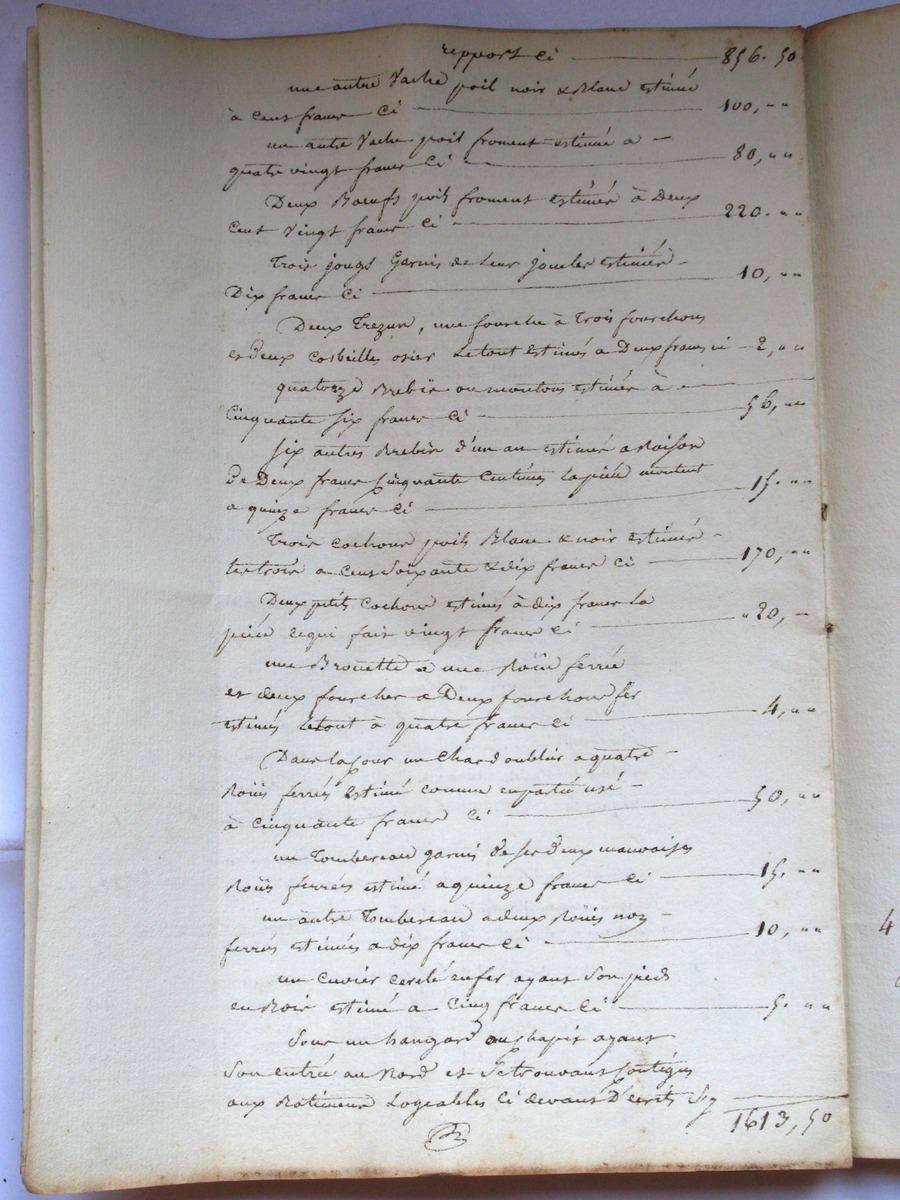 repport ci 856. 50
une autre Vache poil noir & Blanc estimé
à Cent francs Ci 100, "
un autre Vache poil froment estimé a
quatre vingt francs Ci 80, " "
Deux Bœufs poil froment estimés à Deux
Cent Vingt francs Ci 220. " "
Trois jougs Garnis de Leur joucles estimés
Dix francs Ci 10, " "
Deux Trezun, une fourche à Trois fourchons
et deux Corbeilles osier Le tout estimés a Deux francs ci 2, " "
quatorze Brebis ou moutons estimés à
Cinquante Six francs Ci 56, " "
Six autres Brebis d'un an estimés a Raison
De Deux francs Cinquante Centimes la pièce montent
a quinze francs Ci 15. " "
Trois cochons poils Blanc & noir estimés
les trois a Cent Soixante & dix francs Ci 170, " "
Deux petits Cochons estimés à dix francs la
pièce cequi fait vingt francs Ci " 20, "
une Brouette a une Roüe ferrée
et deux fourches a Deux fourchons fer
estimés Letout à quatre francs Ci 4, " "
Dans la Cour un Char d'oublier a quatre
Roües ferrés Estimé comme enpartie usé
à Cinquante francs Ci 50, " "
un Tombereau garnis de ses deux mauvaises
Roües ferrées estimé a quinze francs Ci 15. " "
un autre Tombereau a deux Roües non
ferrés estimés a dix francs Ci 10, " "
un Cuvier cerclé en fer ayant Son pied
en Bois estimé a Cinq francs Ci 5. " "
Sous un hangard ou chapit ayant
Son entrée au Nord et Setrouvant Contigus
aux Batiments Logeables Ci devant D'ecrits
1613, 50